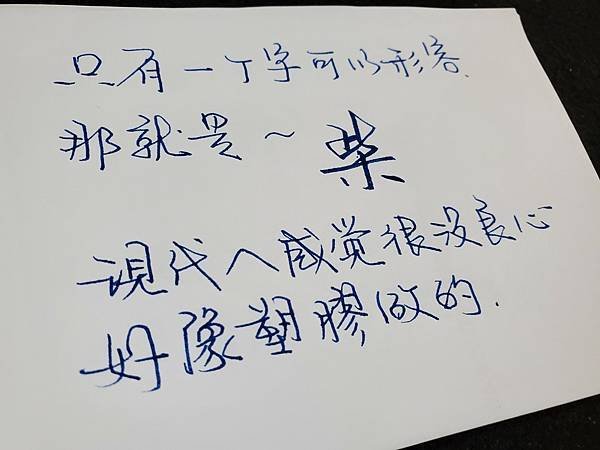 只有一个字可以形容.
那就是~ 柴
現代人感覚很没良心
好像塑膠做的.